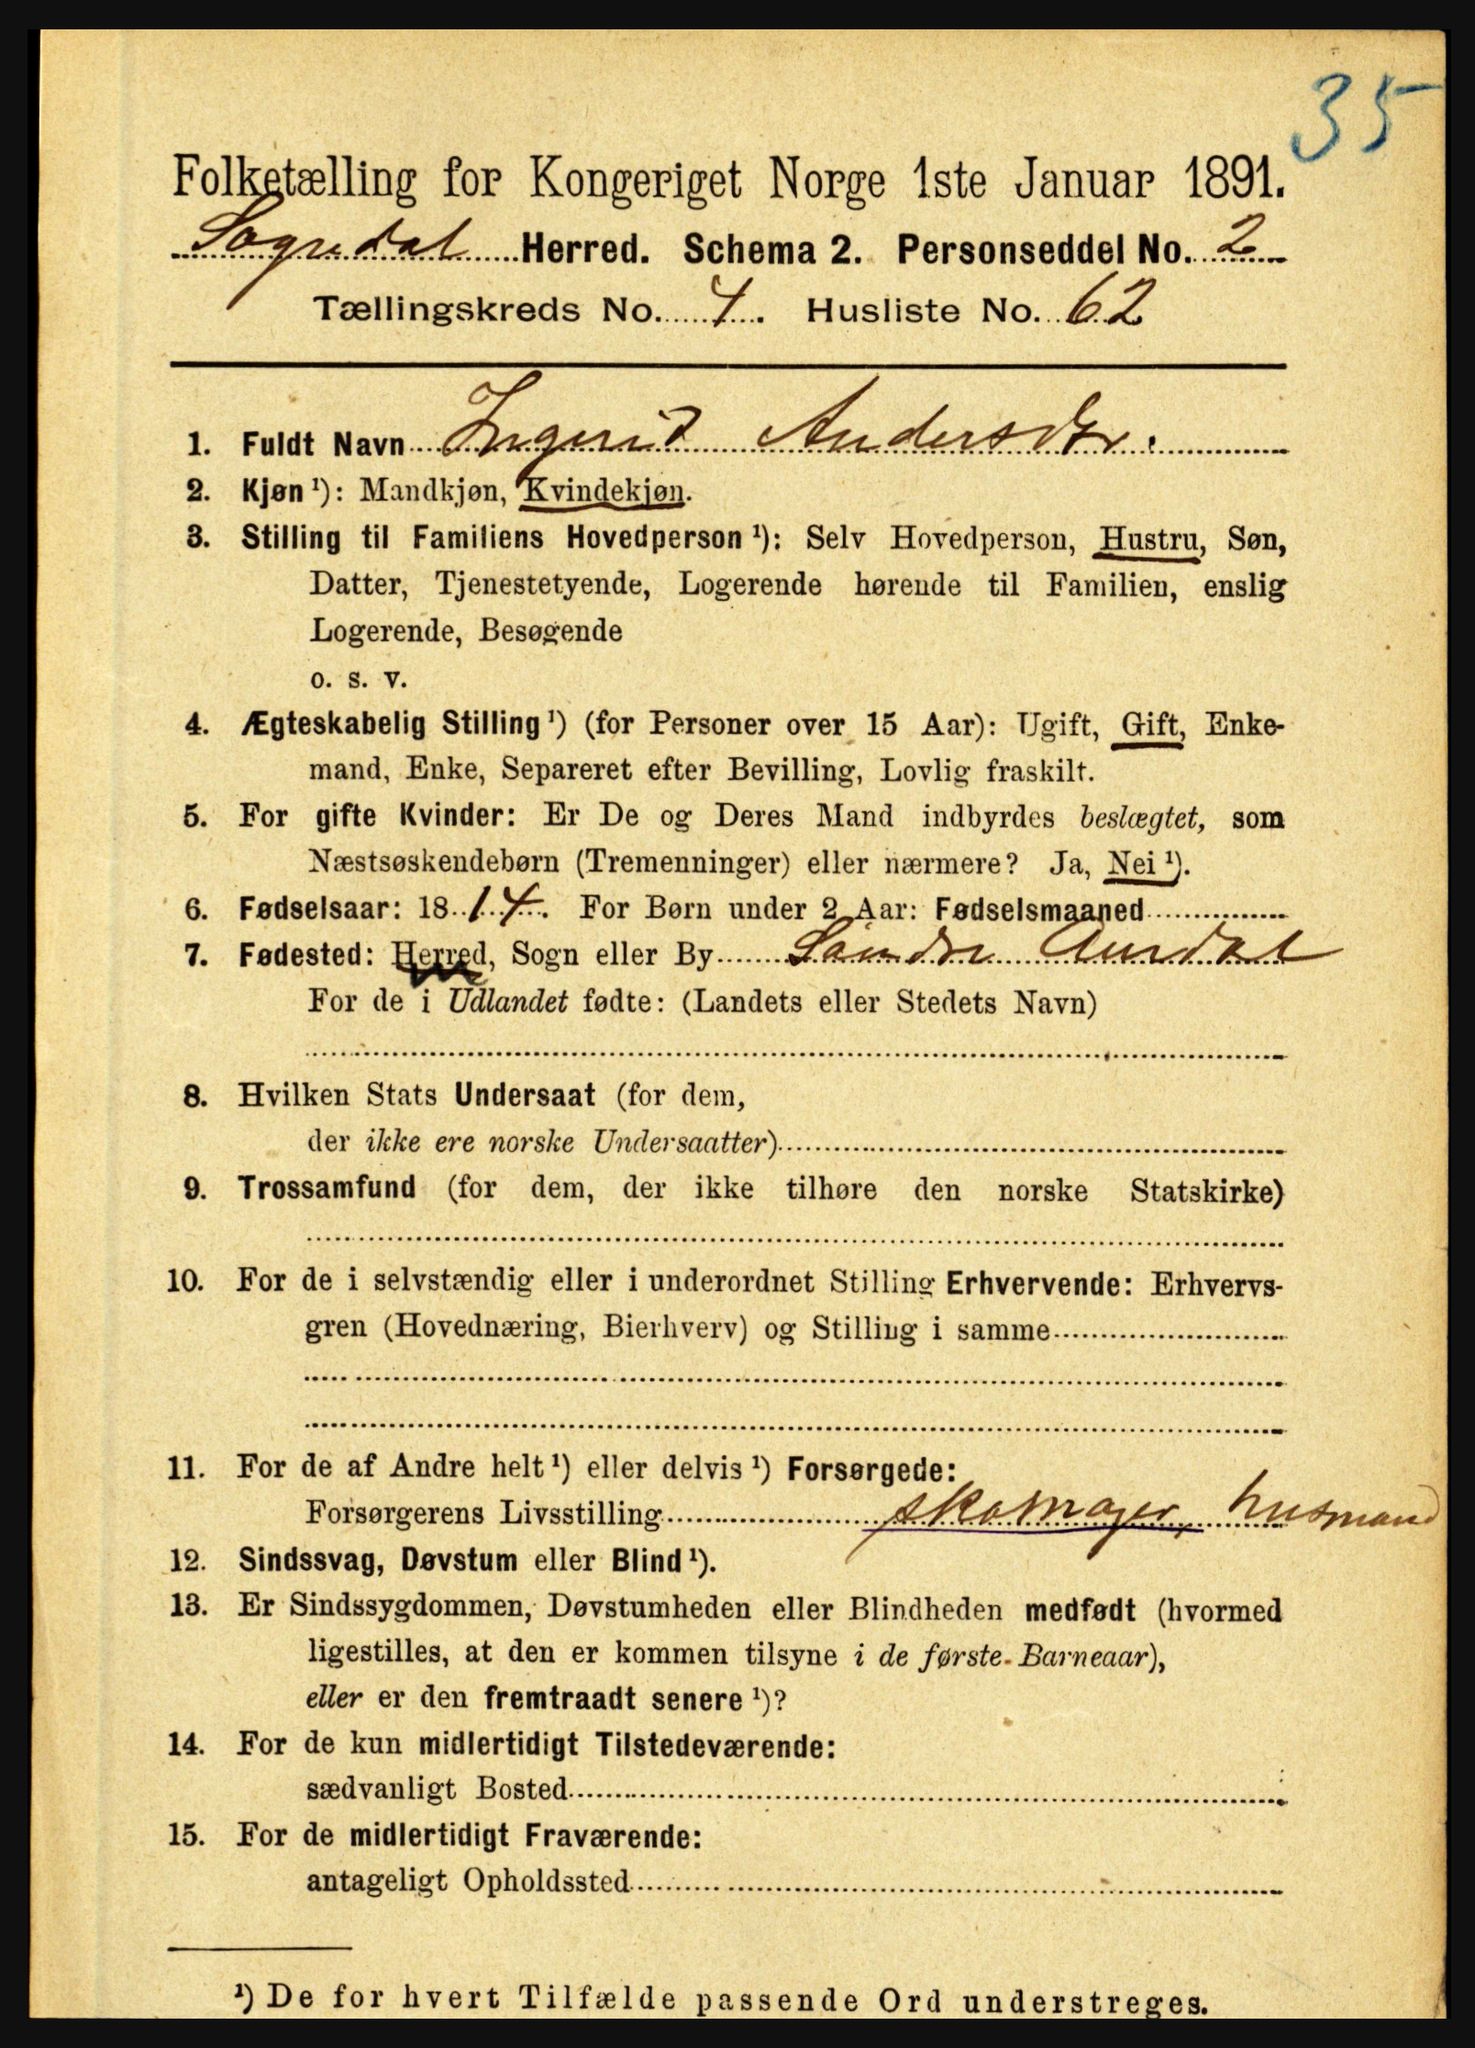 35
Folketælling for Kongeriget Norge 1ste Januar 1891.
Sogndal Herred. Schema 2. Personseddel No. 2
Tællingskreds No. 4. Husliste No. 62
1. Fuldt Navn Ingerid Andersdtr.
2. Kjøn ¹): Mandkjøn, Kvindekjøn.
3. Stilling til Familiens Hovedperson ¹): Selv Hovedperson, Hustru, Søn,
Datter, Tjenestetyende, Logerende hørende til Familien, enslig
Logerende, Besøgende
o. s. v.
4. Ægteskabelig Stilling ¹) (for Personer over 15 Aar): Ugift, Gift, Enke-
mand, Enke, Separeret efter Bevilling, Lovlig fraskilt.
5. For gifte Kvinder: Er De og Deres Mand indbyrdes beslægtet, som
Næstsøskendebørn (Tremenninger) eller nærmere? Ja, Nei ¹).
6. Fødselsaar: 1814. For Børn under 2 Aar: Fødselsmaaned
7. Fødested: Herred, Sogn eller By Søndre Aurdal
For de i Udlandet fødte: (Landets eller Stedets Navn)
8. Hvilken Stats Undersaat (for dem,
der ikke ere norske Undersaatter)
9. Trossamfund (for dem, der ikke tilhøre den norske Statskirke)
10. For de i selvstændig eller i underordnet Stilling Erhvervende: Erhvervs-
gren (Hovednæring, Bierhverv) og Stilling i samme
11. For de af Andre helt ¹) eller delvis ¹) Forsørgede:
Forsørgerens Livsstilling skomager, husmand
12. Sindssvag, Døvstum eller Blind ¹).
13. Er Sindssygdommen, Døvstumheden eller Blindheden medfødt (hvormed
ligestilles, at den er kommen tilsyne i de første Barneaar),
eller er den fremtraadt senere ¹)?
14. For de kun midlertidigt Tilstedeværende:
sædvanligt Bosted
15. For de midlertidigt Fraværende:
antageligt Opholdssted
¹) De for hvert Tilfælde passende Ord understreges.